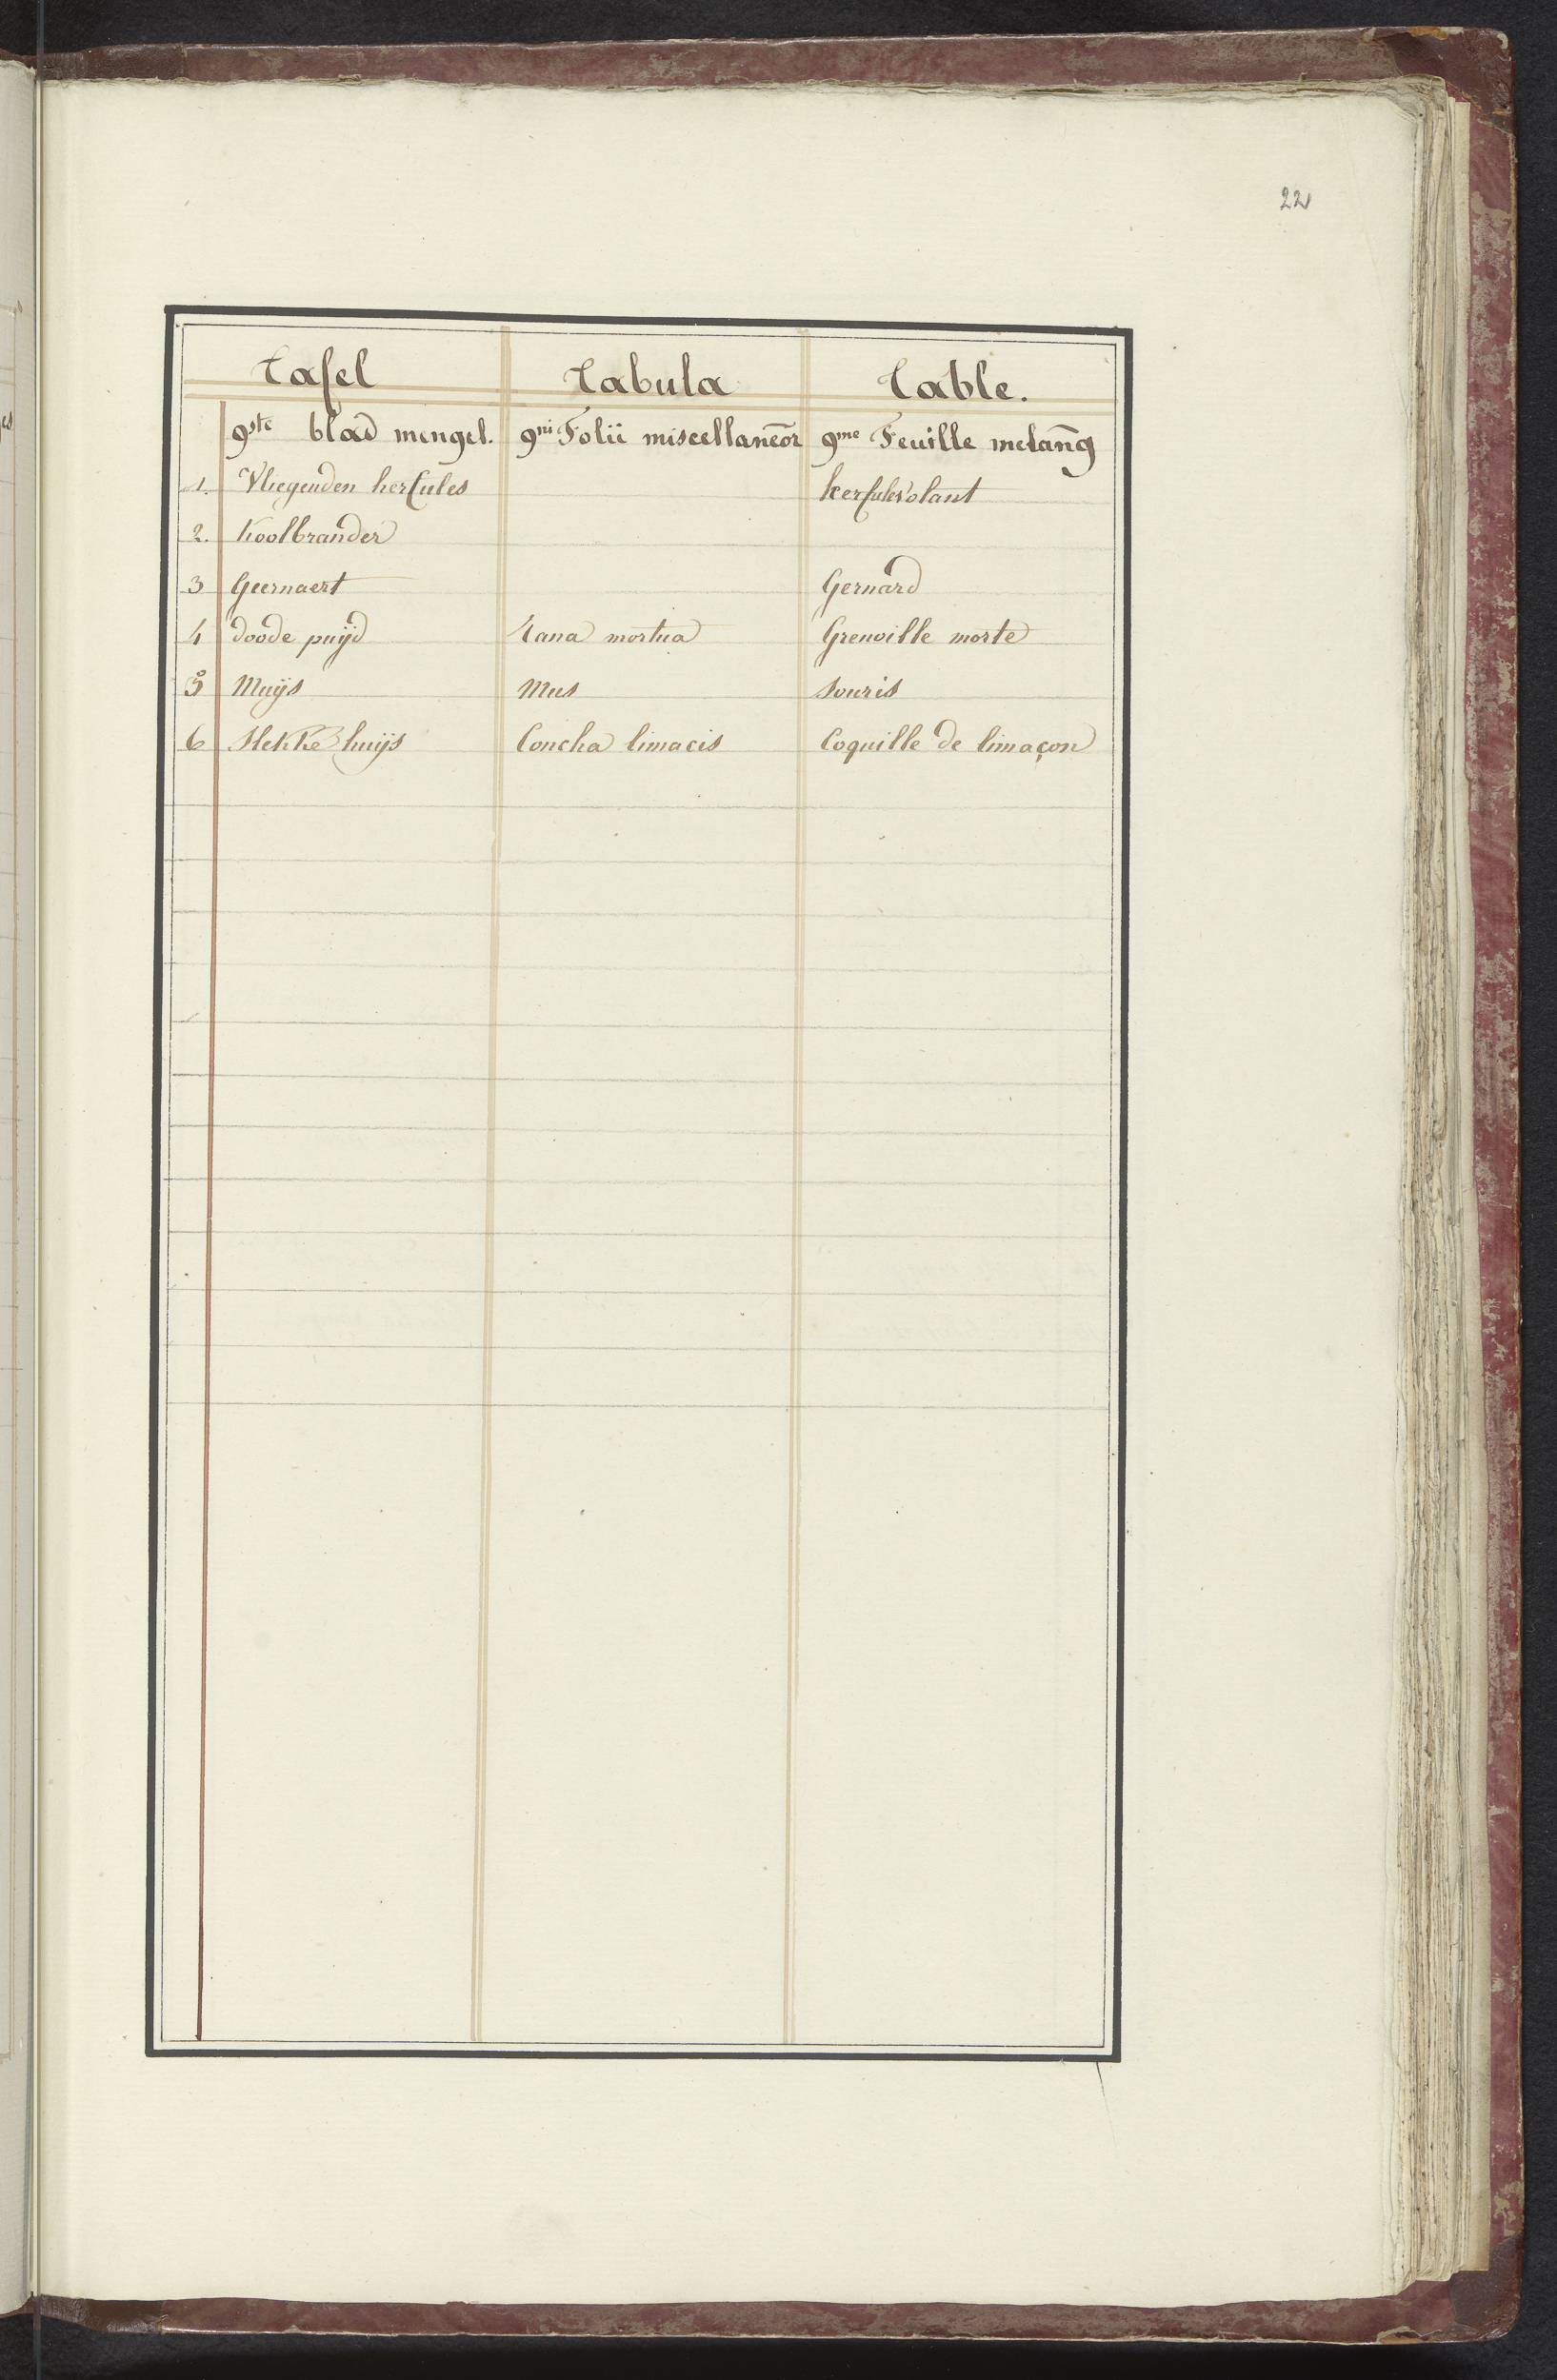 22
Tafel Tabula Table.
9ste blad mengel. 9ni Folii miscellaneōr 9me Feuille melan̄g
1. Vliegenden hercules herculesvolant
2. Koolbrander
3 Geernaert Gernard
4 doode puijd rana mortua Grenoille morte
5 Muijs Mus Souris
6 Slekke huijs Concha limacis Coquille de limaçon